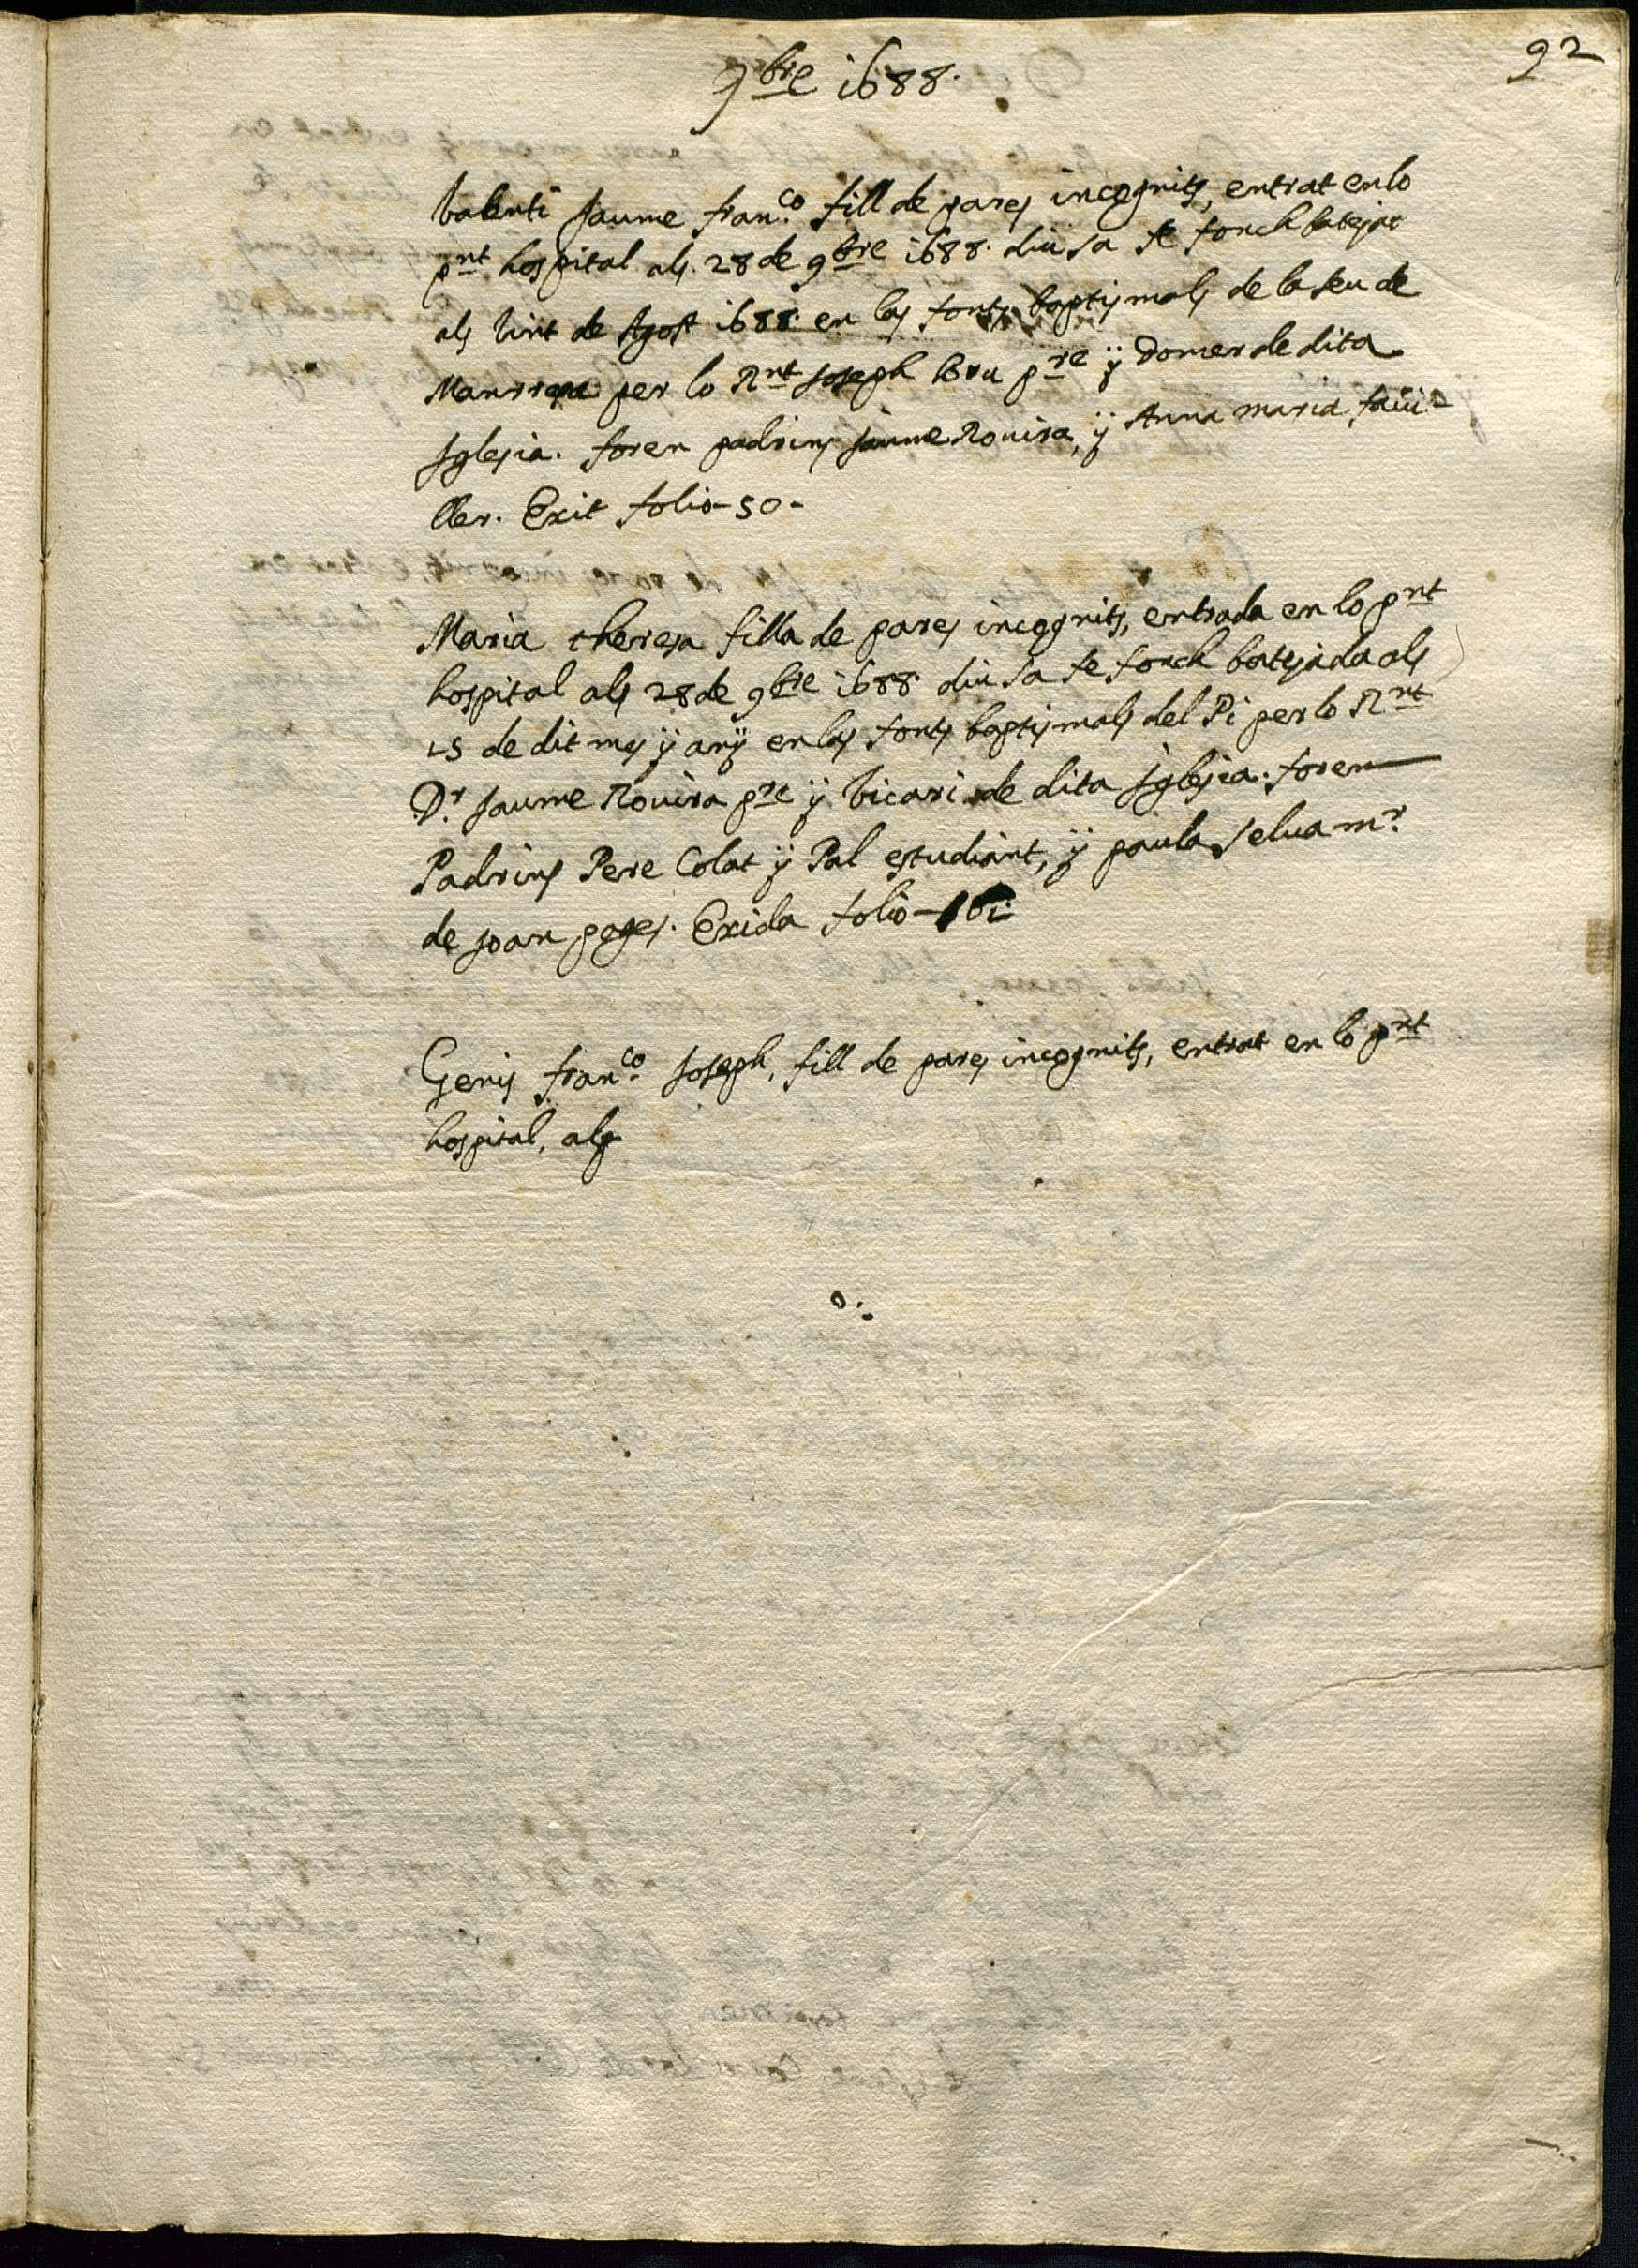 92
9bre 1688.
Valenti Jaume Franco. fill de pares incognits, entrat en lo
pnt hospital als 28 de 9bre 1688. diu sa fe fonch batejat
als vint de Agost 1688. en las fonts baptismals de la seu de
Manrresa per lo Rnt Joseph Bru pre ÿ Domer de dita
Iglesia. foren padrins Jaume Rovira, ÿ Anna maria
ller. Exit folio - 50 -
Maria theresa filla de pares incognits, entrada en lo pnt
hospital als 28 de 9bre 1688. diu sa fe fonch batejada als
25 de dit mes ÿ anÿ en las fonts baptismals del Pi per lo Rnt
Dr. Jaume Rovira pre ÿ vicari de dita Iglesia. foren
Padrins Pere Colat ÿ Pal estudiant, ÿ paula selva mr.
de Joan pages. Exida folio -
Genis franco. Joseph, fill de pares incognits, entrat en lo pnt
hospital, als